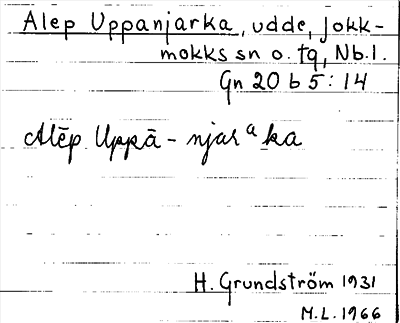 Alep Uppanjarka, udde, Jokk-
mokks sn o. tg, Nb.l.
Gn 20 b 5:14
Alēp Uppā-njarᵃka
H. Grundström 1931
M.L. 1966